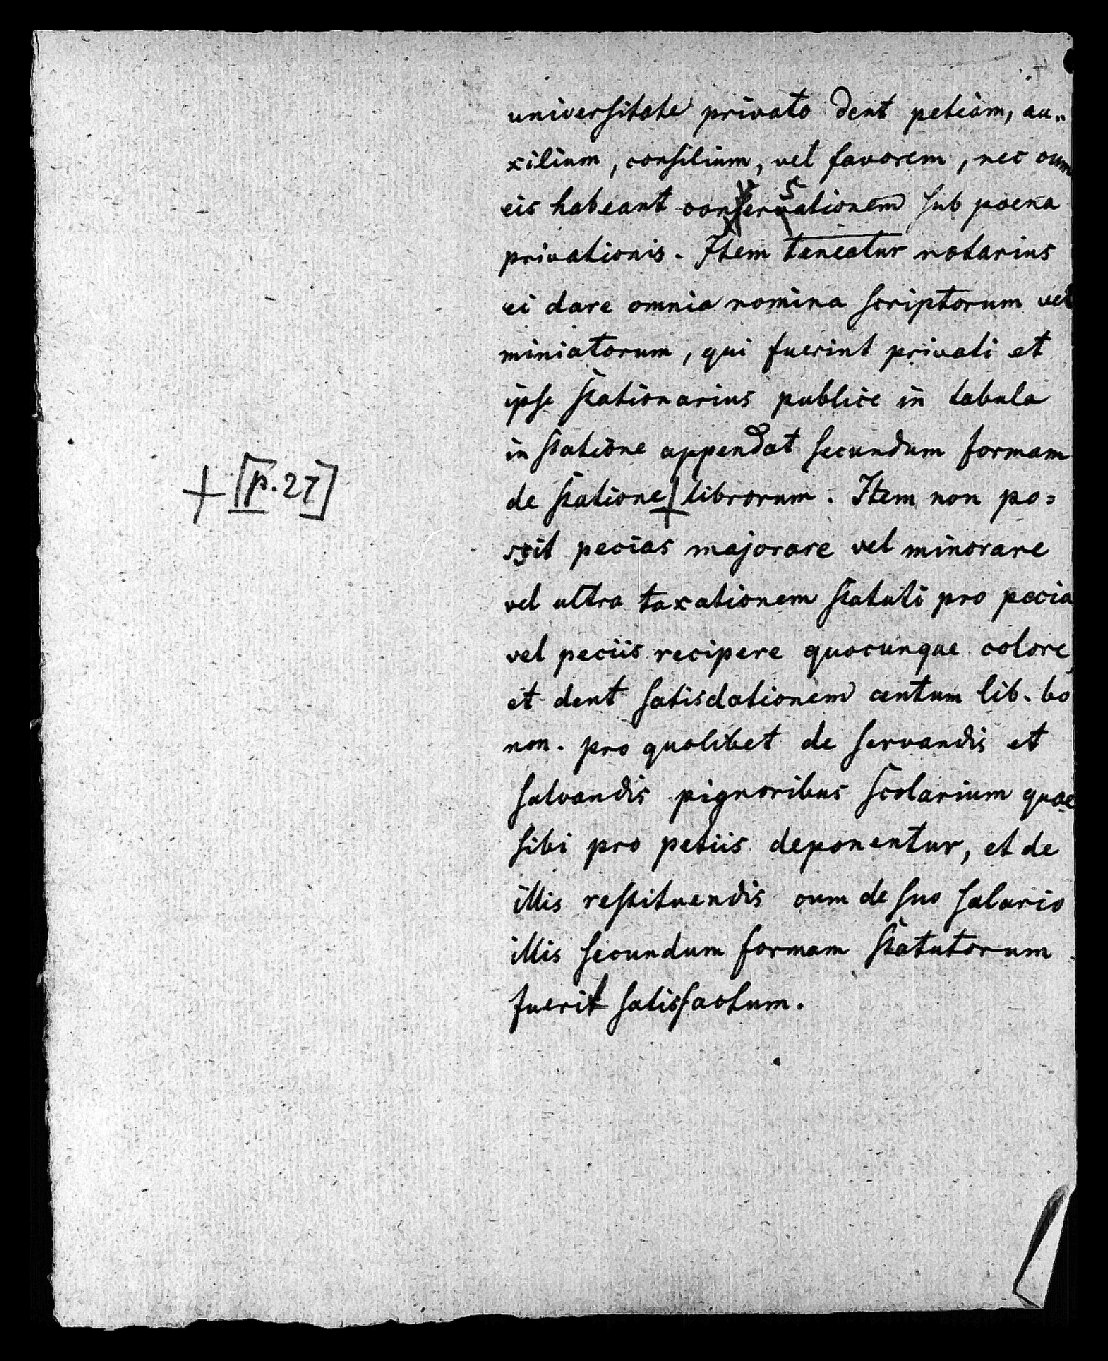 universitate privato dent petiam, au„
xilium, consilium, vel favorem, nec cum
eis habeant conversationem sub poena
privationis. Item teneatur notarius
ei dare omnia nomina scriptorum vel
miniatorum, qui fuerint privati et
ipse stationarius publice in tabula
in statione appendat secundum formam
+ [p. 27]
de statione + librorum. Item non po=
ssit pecias majorare vel minorare
vel ultra taxationem statuti pro pecia
vel peciis recipere quocunque colore
et dent satisdationem centum lib. bo
non. pro quolibet de servandis et
salvandis pignoribus scolarium quae
sibi pro petiis deponentur, et de
illis restituendis cum de suo salario
illis secundum formam statutorum
fuerit satisfactum.